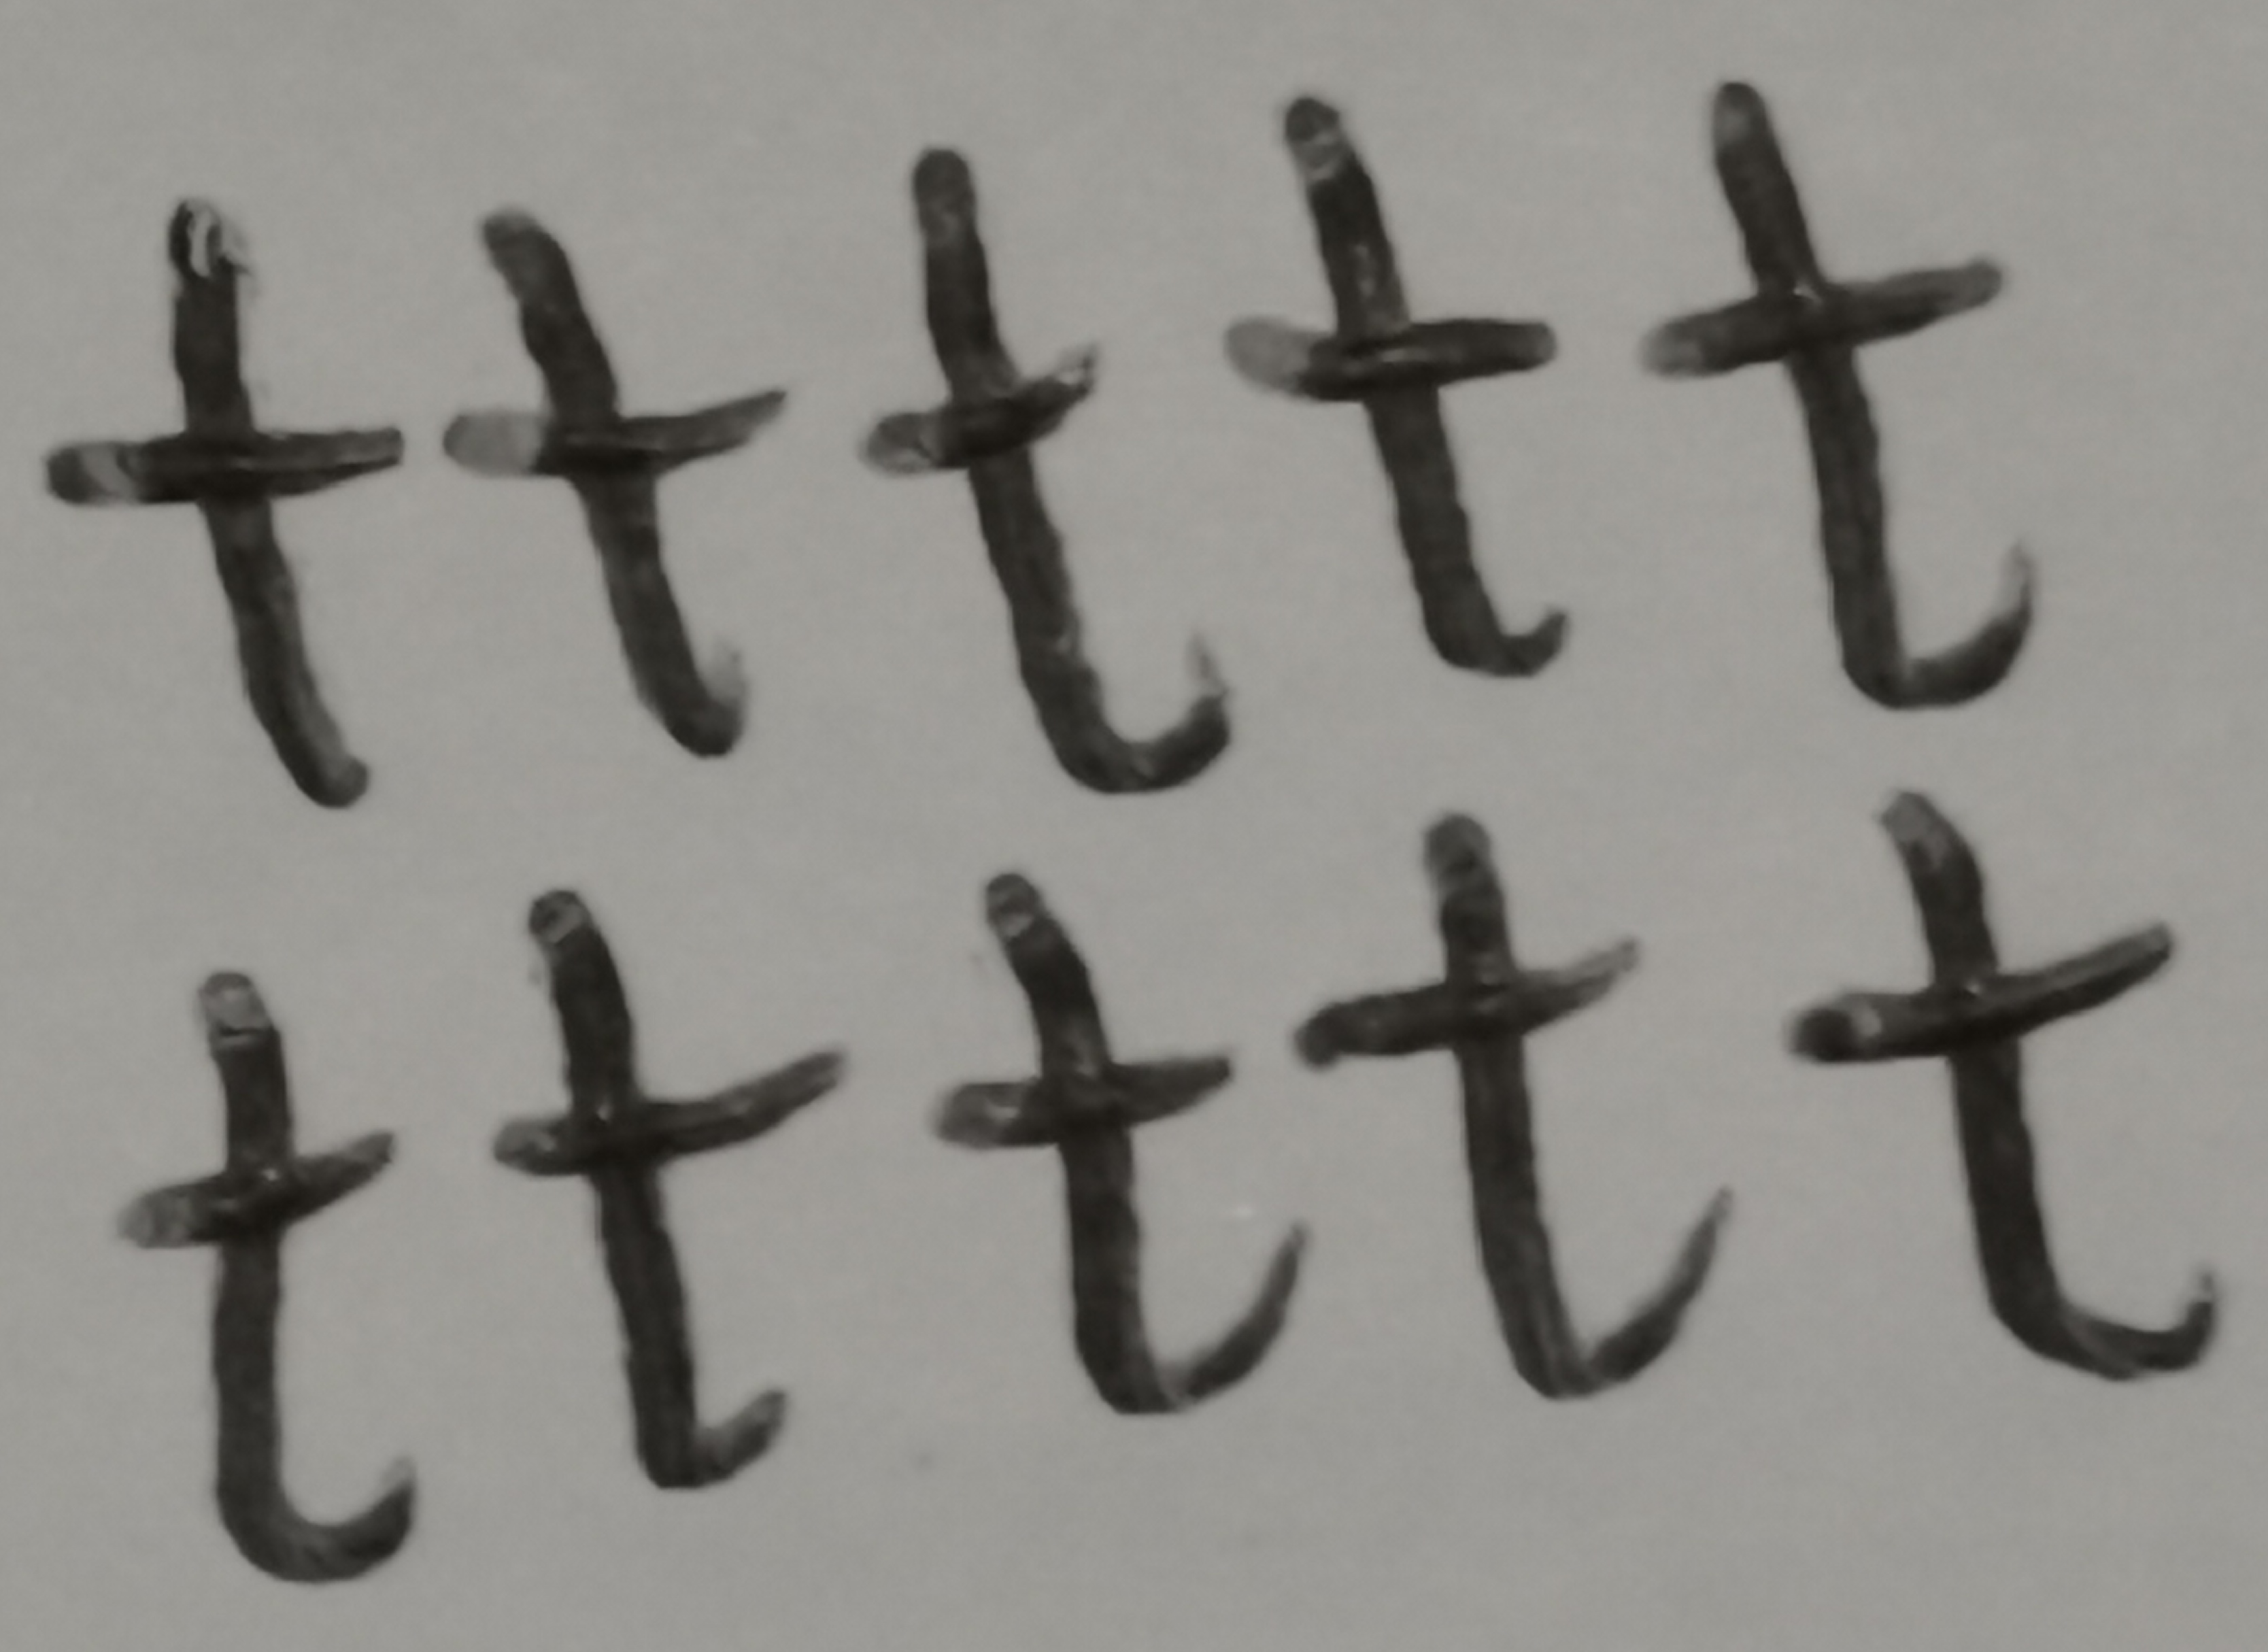 t t t t t
t t t t t